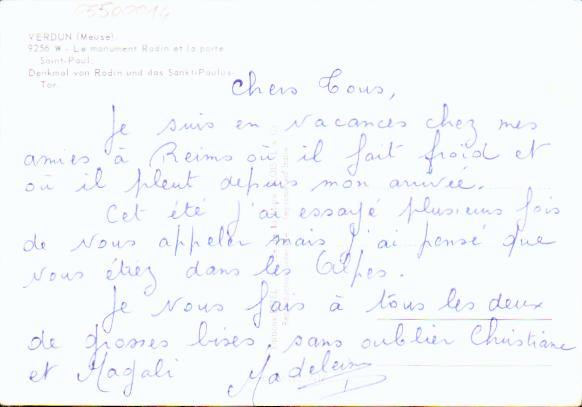 05500014
VERDUN (Meuse).
9256 W - Le monument Rodin et la porte
Saint-Paul.
Denkmal von Rodin und das Sankt-Paulus-
Tor.
Chers Tous,
Je suis en vacances chez mes
amies à Reims où il fait froid et
où il pleut depuis mon arrivée.
Cet été j'ai essayé plusieurs fois
de vous appeler mais j'ai pensé que
vous étiez dans les Alpes.
Je vous fais à tous les deux
de grosses bises, sans oublier Christiane
et Magali Madeleine